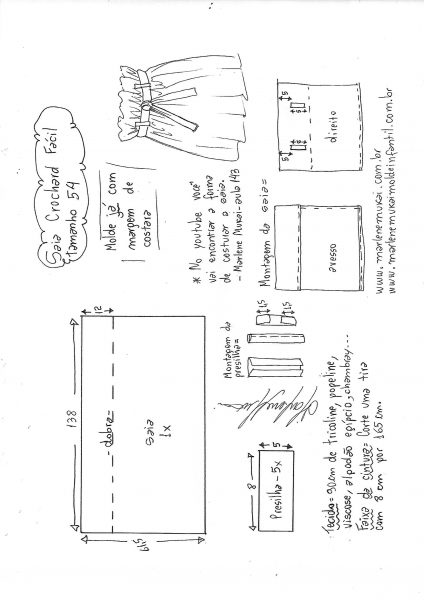 Saia Crochard Facil
Tamanho 54
Molde já com
margem de
costura
* No youtube você
vai encontrar a forma
de costurar a saia.
- Marlene Mukai - aula 143
138
12
- dobra -
saia
1x
61,5
Montagem da
presilha=
1,5
1,5
8
5
Presilha - 5x
Montagem da saia=
avesso
direito
5
5
5
5
www.marlenemukai.com.br
www.marlenemukaimoldeinfantil.com.br
Tecido= 90cm de tricoline, popeline,
viscose, algodão egípcio, chambray...
Faixa da cintura= Corte uma tira
com 8 cm por 165 cm.